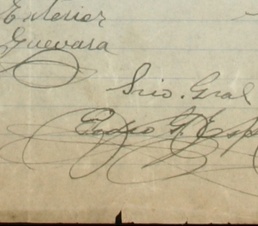 Exterior
Guevara
Srio. Gral
Pedro G. Esp